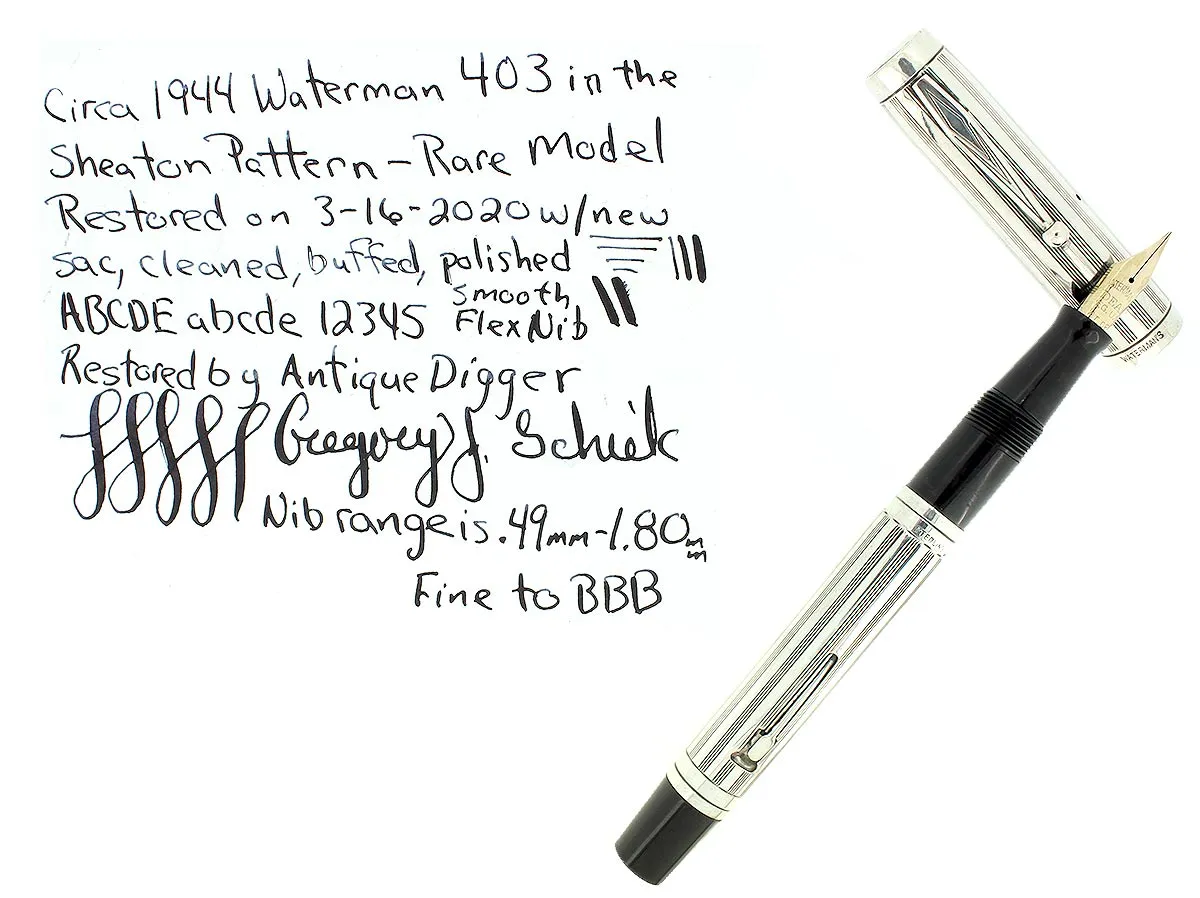 Circa 1944 Waterman 403 in the
Sheaton Pattern - Rare Model
Restored on 3-16-2020 w/new
sac, cleaned, buffed, polished
ABCDE abcde 12345
Smooth
Flex Nib
Restored by Antique Digger
Gregory J. Schiek
Nib range is .49mm-1.80mm
Fine to BBB
WATERMAN'S